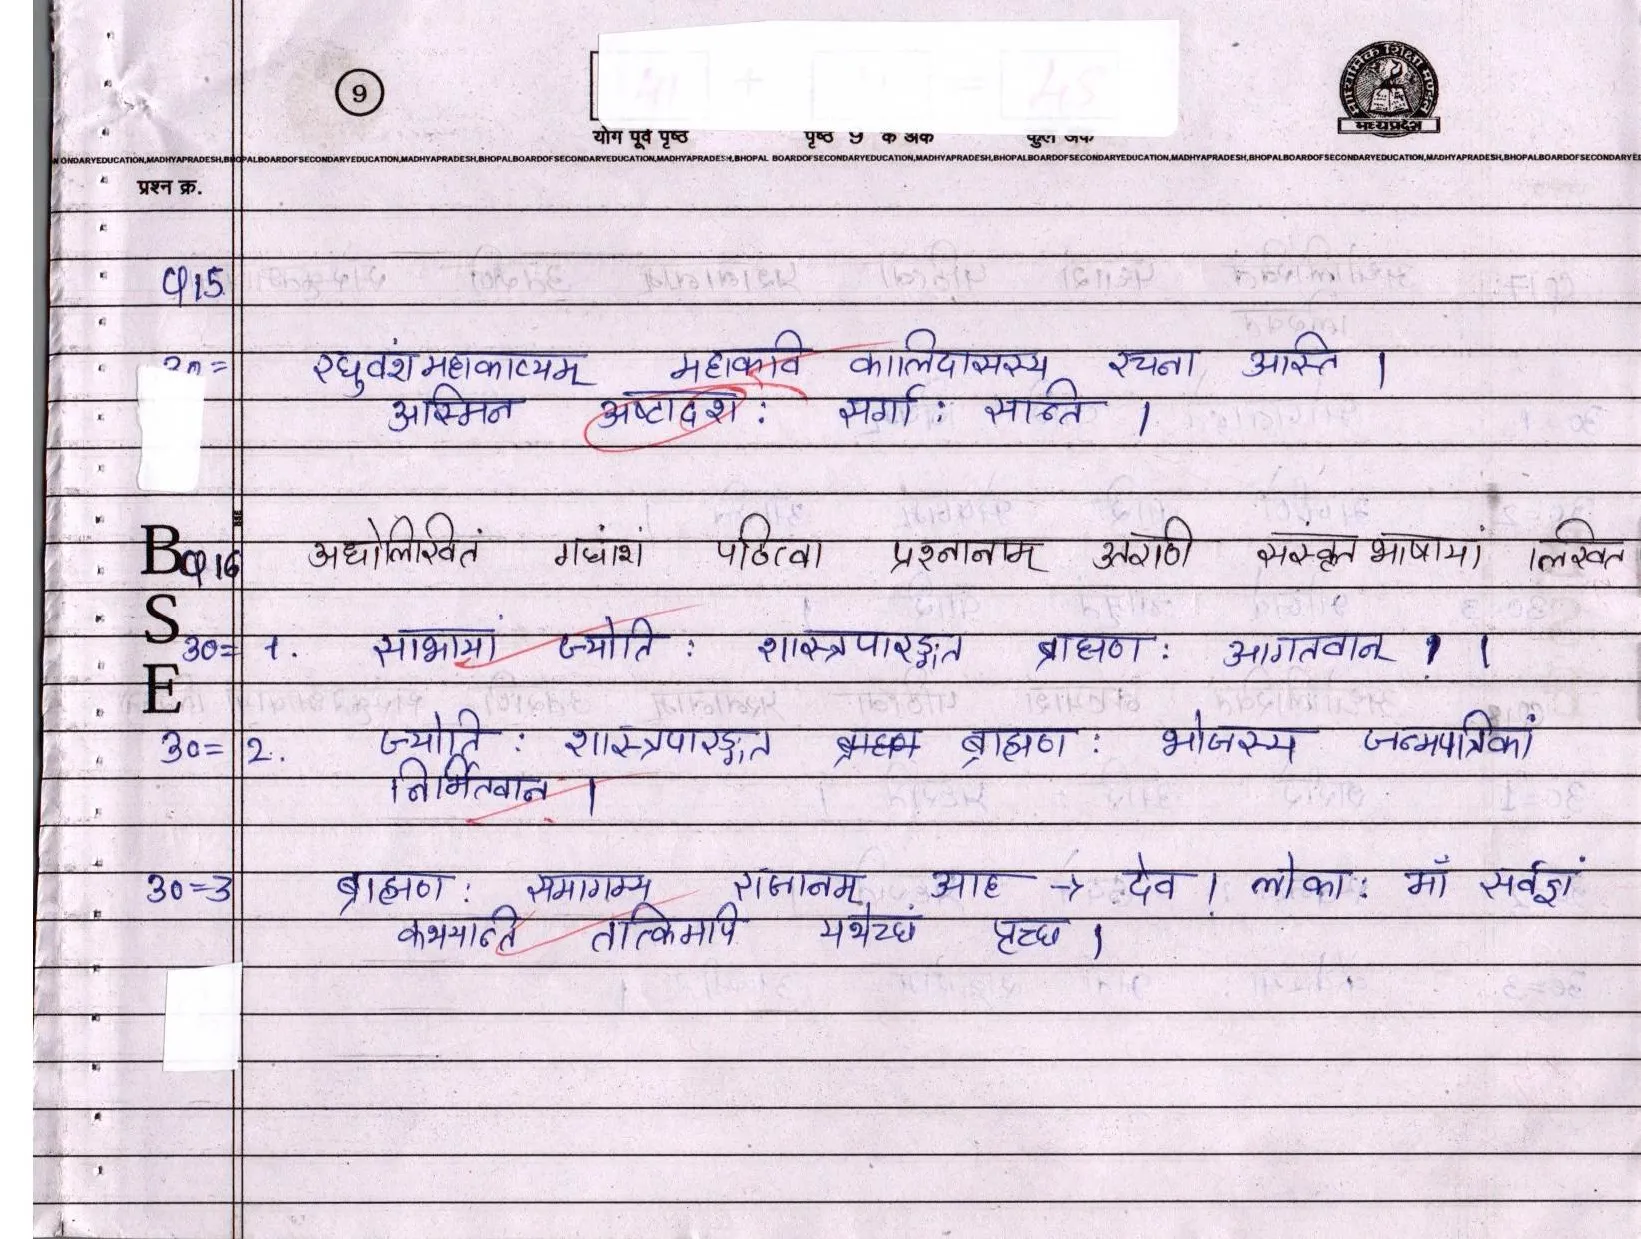 9
योग पूर्व पृष्ठ पृष्ठ 9 के अंक कुल अंक
माध्यमिक शिक्षा मण्डल
मध्यप्रदेश
ONDARYEDUCATION,MADHYAPRADESH,BHOPALBOARDOFSECONDARYEDUCATION,MADHYAPRADESH,BHOPALBOARDOFSECONDARYEDUCATION,MADHYAPRADESH,BHOPAL BOARDOFSECONDARYEDUCATION,MADHYAPRADESH,BHOPALBOARDOFSECONDARYEDUCATION,MADHYAPRADESH,BHOPALBOARDOFSECONDARYE
प्रश्न क्र.
Q15.
उ०= रघुवंशमहाकाव्यम् महाकवि कालिदासस्य रचना अस्ति ।
अस्मिन अष्टादश: सर्गा: सन्ति ।
BSE
Q16 अधोलिखितं गधांशं पठित्वा प्रश्नानाम् उतराणी संस्कृतभाषायां लिखित
उ०= 1. साभायां ज्योति: शास्त्रपारङ्गत ब्राह्मण: आगतवान् । ।
उ०= 2. ज्योति: शास्त्रपारङ्गत ब्राह्मण: भोजस्य जन्मपत्रिकां
निर्मितवान् ।
उ०=3 ब्राह्मण: समागम्य राजानम् आह → देव । लोका: माँ सर्वज्ञं
कथयान्ति तत्किमपि यथेच्छं पृच्छ ।